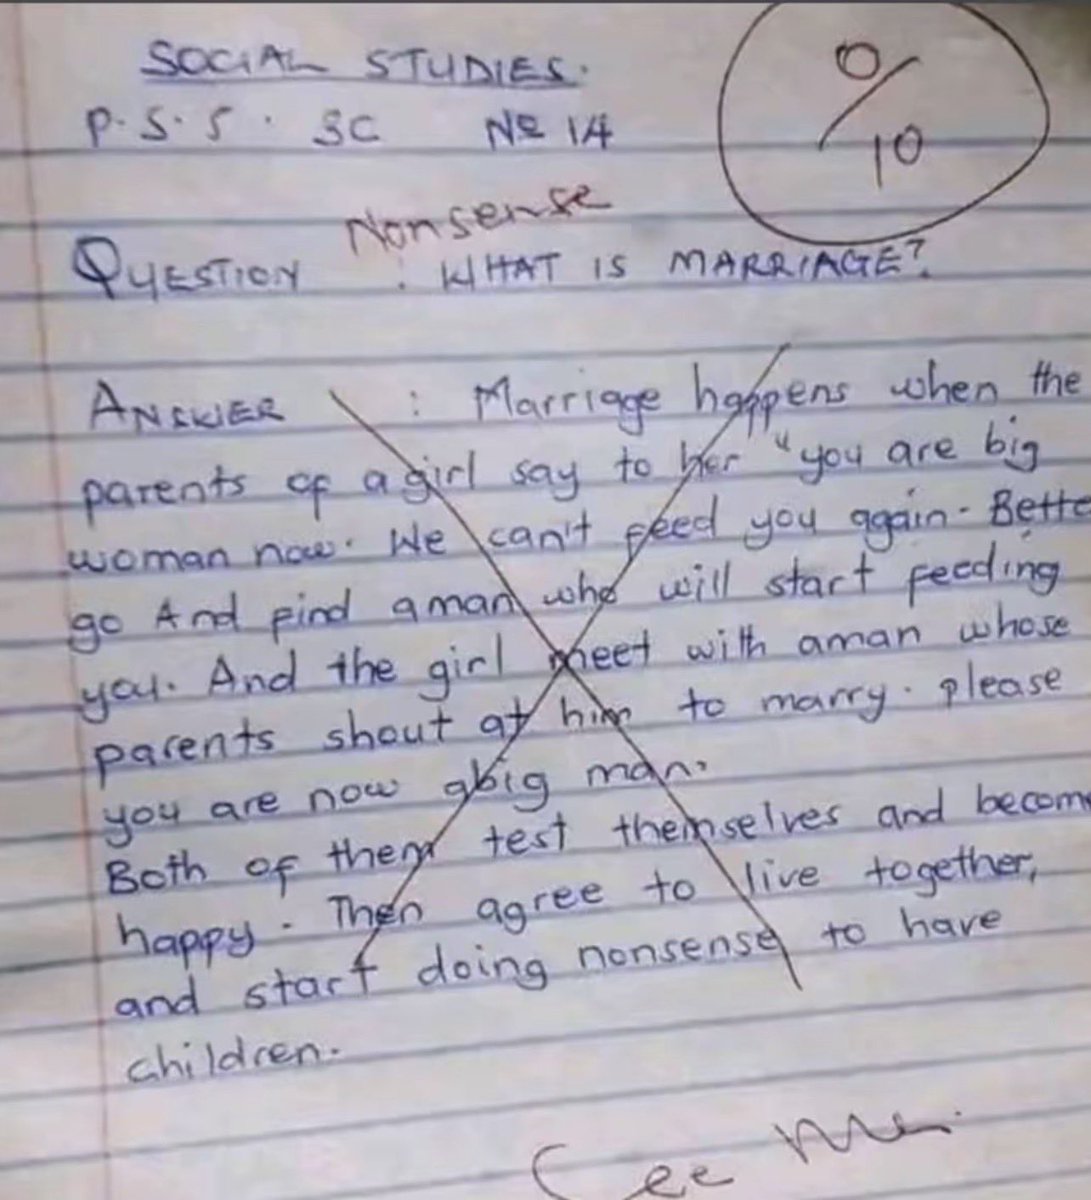 SOCIAL STUDIES.
0/10
P.S.S. 3C No 14
Nonsense
QUESTION : WHAT IS MARRIAGE?
ANSWER : Marriage happens when the
parents of a girl say to her "you are big
woman now. We can't feed you again. Bette
go And find a man who will start feeding
you. And the girl meet with a man whose
parents shout at him to marry. please
you are now a big man.
Both of them test themselves and become
happy. Then agree to live together,
and start doing nonsense to have
children.
See me.